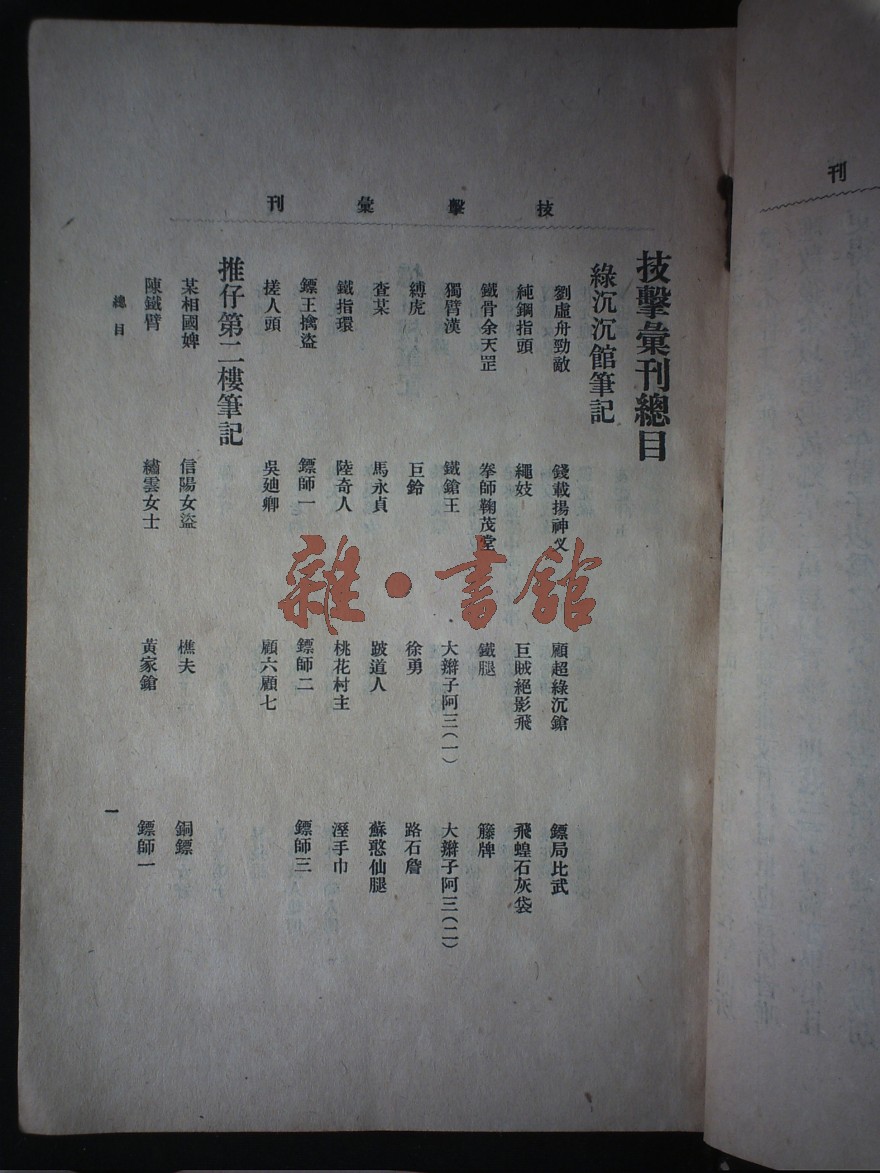 技擊彙刊
技擊彙刊總目
綠沉沉館筆記
劉虛舟勁敵 錢載揚神叉 顧超綠沉鎗 鏢局比武
純鋼指頭 繩妓 巨賊絕影飛 飛蝗石灰袋
鐵骨余天罡 拳師鞠茂堂 鐵腿 籐牌
獨臂漢 鐵鎗王 大辮子阿三(一) 大辮子阿三(二)
縛虎 巨鈴 徐勇 路石詹
查某 馬永貞 跛道人 蘇憨仙腿
鐵指環 陸奇人 桃花村主 溼手巾
鏢王擒盜 鏢師一 鏢師二 鏢師三
搓人頭 吳廸卿 顧六顧七
推仔第二樓筆記
某相國婢 信陽女盜 樵夫 銅鏢
陳鐵臂 繡雲女士 黃家鎗 鏢師一
總目
一
刊
雜·書館